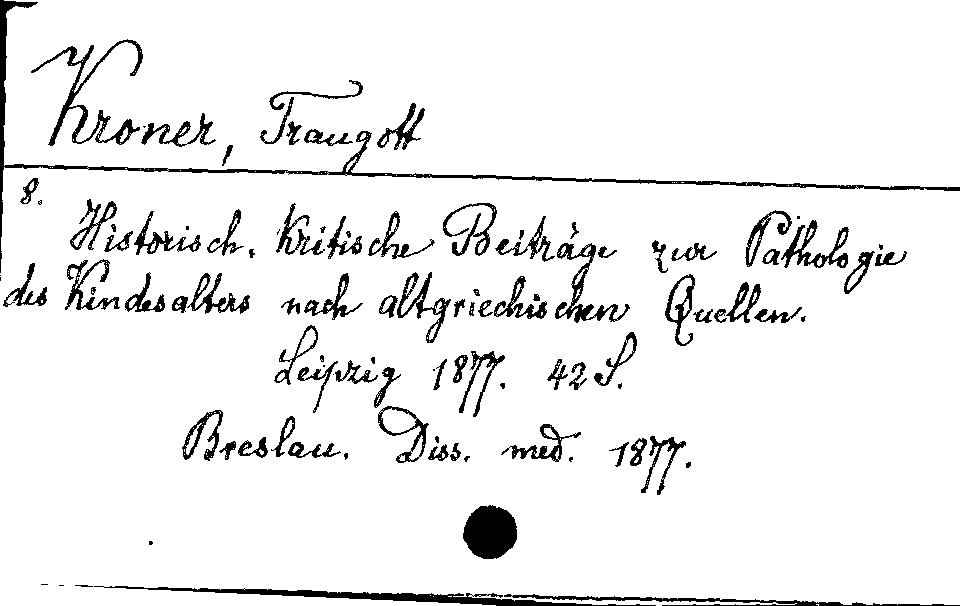 Kroner, Traugott
8.
Historisch. Kritische Beiträge zur Pathologie
des Kindesalters nach altgriechischen Quellen.
Leipzig 1877. 42 S.
Breslau. Diss. med. 1877.